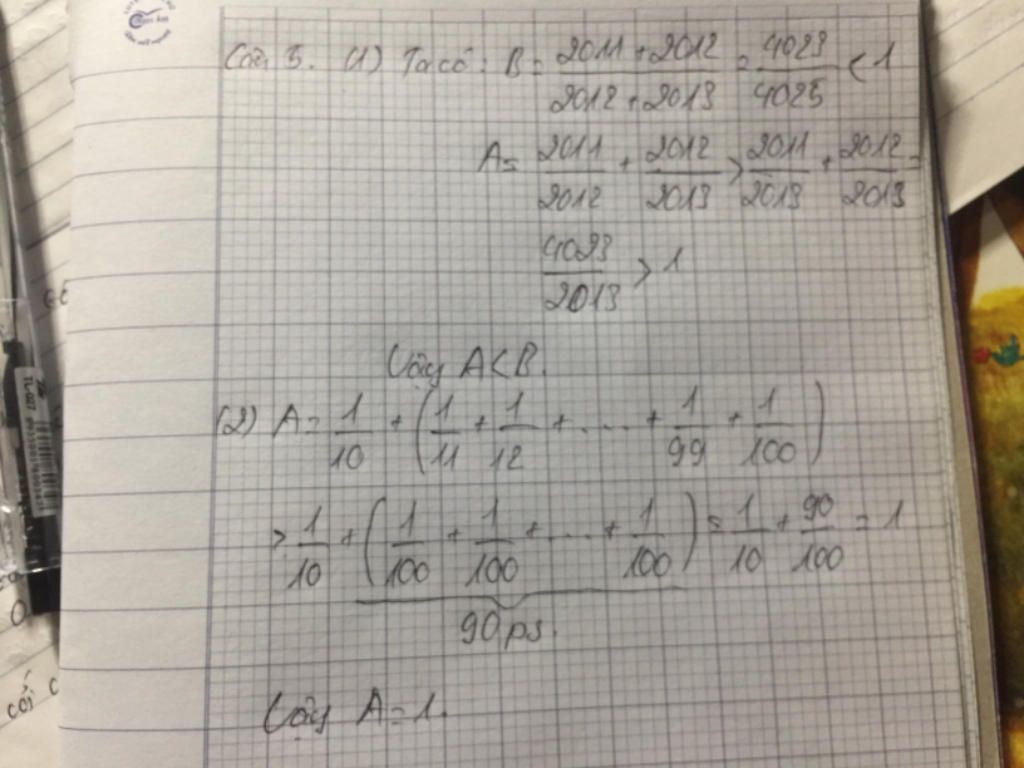 Câu 5. (1) Ta có: B = 2011 + 2012 / 2012 + 2013 = 4023 / 4025 < 1
A = 2011/2012 + 2012/2013 > 2011/2013 + 2012/2013 =
4023/2013 > 1
Vậy A < B.
(2) A = 1/10 + (1/11 + 1/12 + .... + 1/99 + 1/100)
> 1/10 + (1/100 + 1/100 + .... + 1/100) = 1/10 + 90/100 = 1
90 ps.
Vậy A = 1.
TL-007